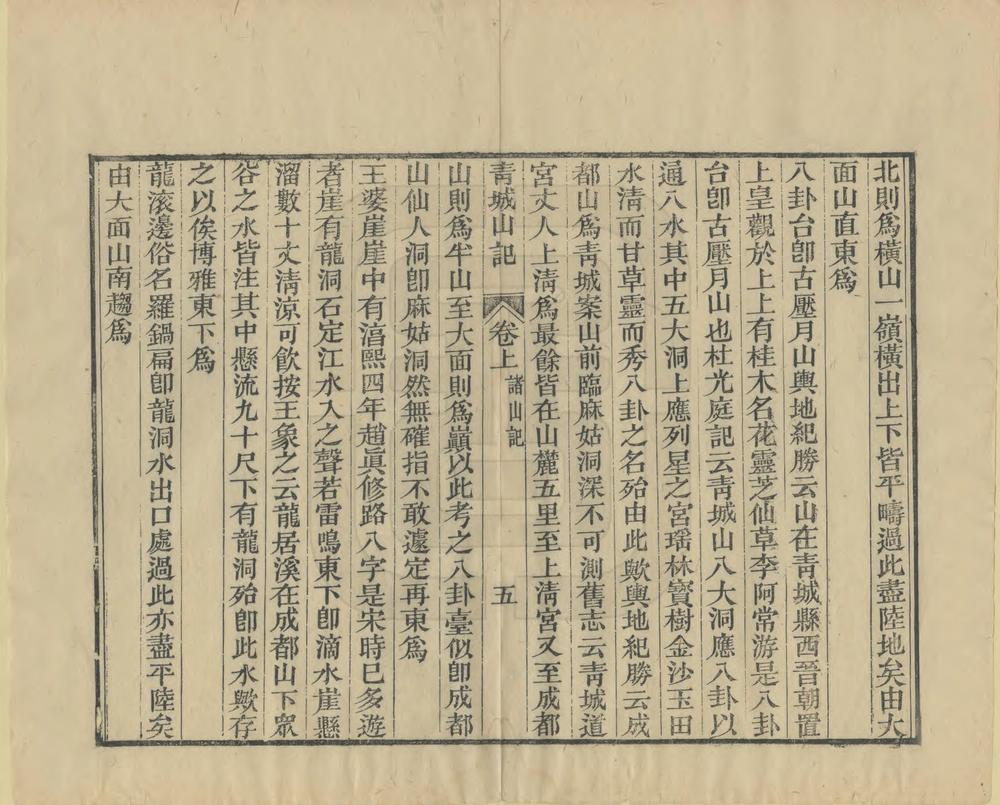 北則爲橫山一嶺橫出上下皆平疇過此盡陸地矣由大
面山直東爲
八卦台卽古壓月山輿地紀勝云山在靑城縣西晉朝置
上皇觀於上上有桂木名花靈芝仙草李阿常游是八卦
台卽古壓月山也杜光庭記云靑城山八大洞應八卦以
通八水其中五大洞上應列星之宮瑤林寶樹金沙玉田
水淸而甘草靈而秀八卦之名殆由此歟輿地紀勝云成
都山爲靑城案山前臨麻姑洞深不可測舊志云靑城道
宮丈人上淸爲最餘皆在山麓五里至上淸宮又至成都
靑城山記 卷上 諸山記 五
山則爲半山至大面則爲巔以此考之八卦臺似卽成都
山仙人洞卽麻姑洞然無確指不敢遽定再東爲
王婆崖崖中有淳熙四年趙眞修路八字是宋時已多遊
者崖有龍洞石定江水入之聲若雷鳴東下卽滴水崖懸
溜數十丈淸涼可飮按王象之云龍居溪在成都山下眾
谷之水皆注其中懸流九十尺下有龍洞殆卽此水歟存
之以俟博雅東下爲
龍滚邊俗名羅鍋扁卽龍洞水出口處過此亦盡平陸矣
由大面山南趨爲